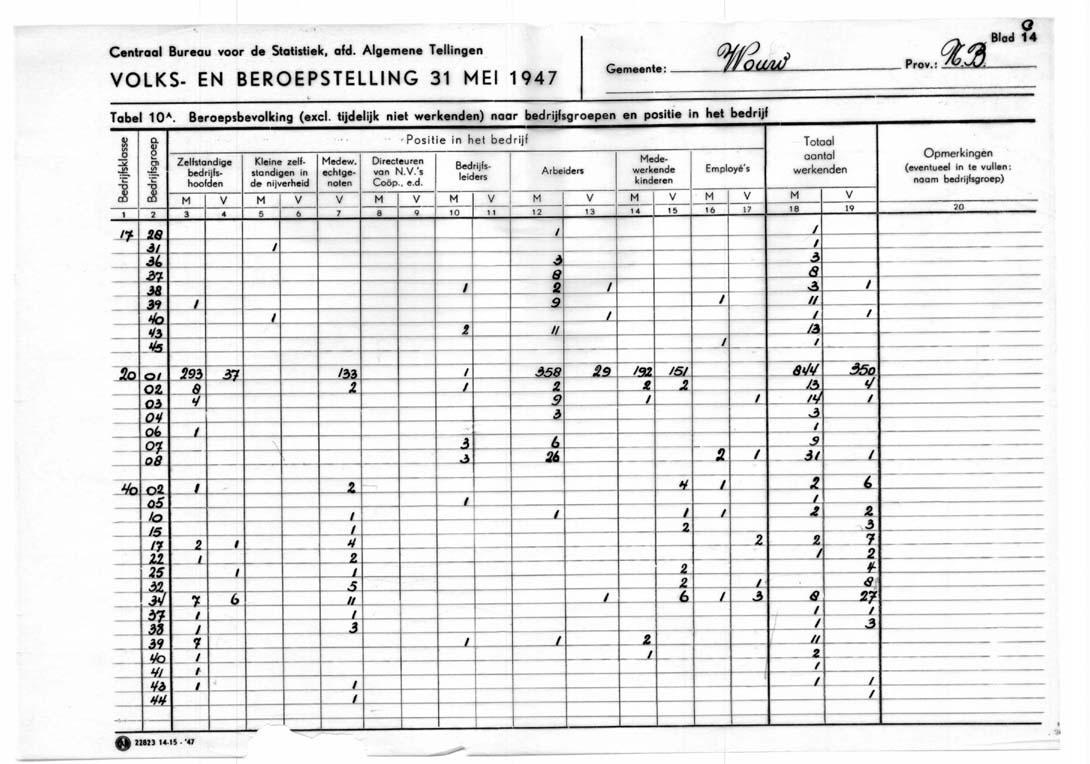 C
Blad 14
Centraal Bureau voor de Statistiek, afd. Algemene Tellingen
VOLKS- EN BEROEPSTELLING 31 MEI 1947
Gemeente: Wouw Prov.: N.B.
Tabel 10A. Beroepsbevolking (excl. tijdelijk niet werkenden) naar bedrijfsgroepen en positie in het bedrijf
Bedrijfsklasse Bedrijfsgroep Positie in het bedrijf Totaal aantal werkenden Opmerkingen (eventueel in te vullen: naam bedrijfsgroep)
Zelfstandige bedrijfs- hoofden Kleine zelf- standigen in de nijverheid Medew. echtge- noten Directeuren van N.V.'s Coöp., e.d. Bedrijfs- leiders Arbeiders Mede- werkende kinderen Employé's
M V M V V M V M V M V M V M V M V
1 2 3 4 5 6 7 8 9 10 11 12 13 14 15 16 17 18 19 20
17 28 1 1
31 1 1
36 3 3
37 8 8
38 1 2 1 3 1
39 1 9 1 11
40 1 1 1 1
43 2 11 13
45 1 1
20 01 293 37 133 1 358 29 192 151 844 350
02 8 2 1 2 2 2 13 4
03 4 9 1 1 14 1
04 3 3
06 1 1
07 3 6 9
08 3 26 2 1 31 1
40 02 1 2 4 1 2 6
05 1 1
10 1 1 1 1 2 2
15 1 2 3
17 2 1 4 2 2 7
22 1 2 1 2
25 1 1 2 4
32 5 2 1 8
34 7 6 11 1 6 1 3 8 27
37 1 1 1 1
38 1 3 1 3
39 7 1 1 2 11
40 1 1 2
41 1 1
43 1 1 1 1
44 1 1
22823 14-15 - '47